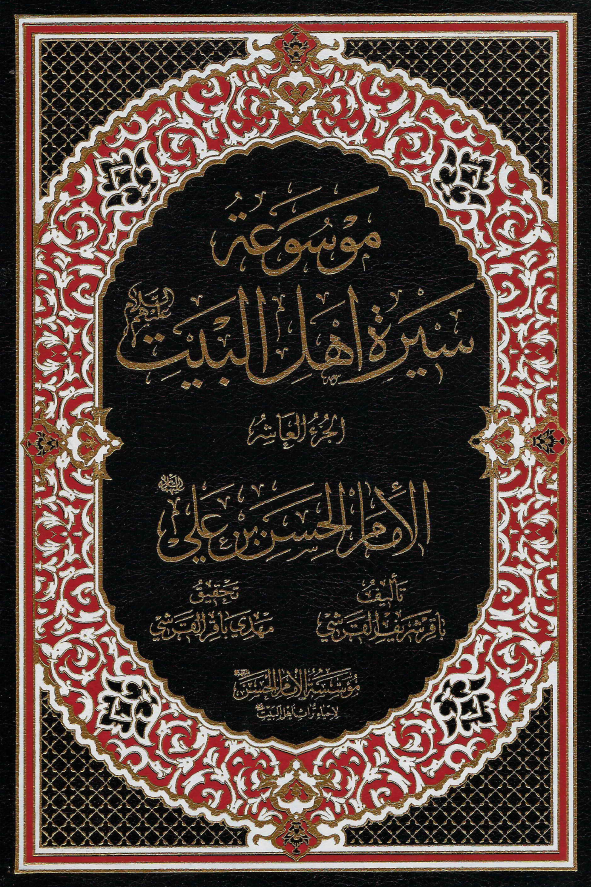 موسوعة
سيرة أهل البيت عليهم السلام
الجزء العاشر
الإمام الحسن بن علي عليه السلام
تأليف تحقيق
باقر شريف القرشي مهدي باقر القرشي
مؤسسة الإمام الحسن
لإحياء تراث أهل البيت